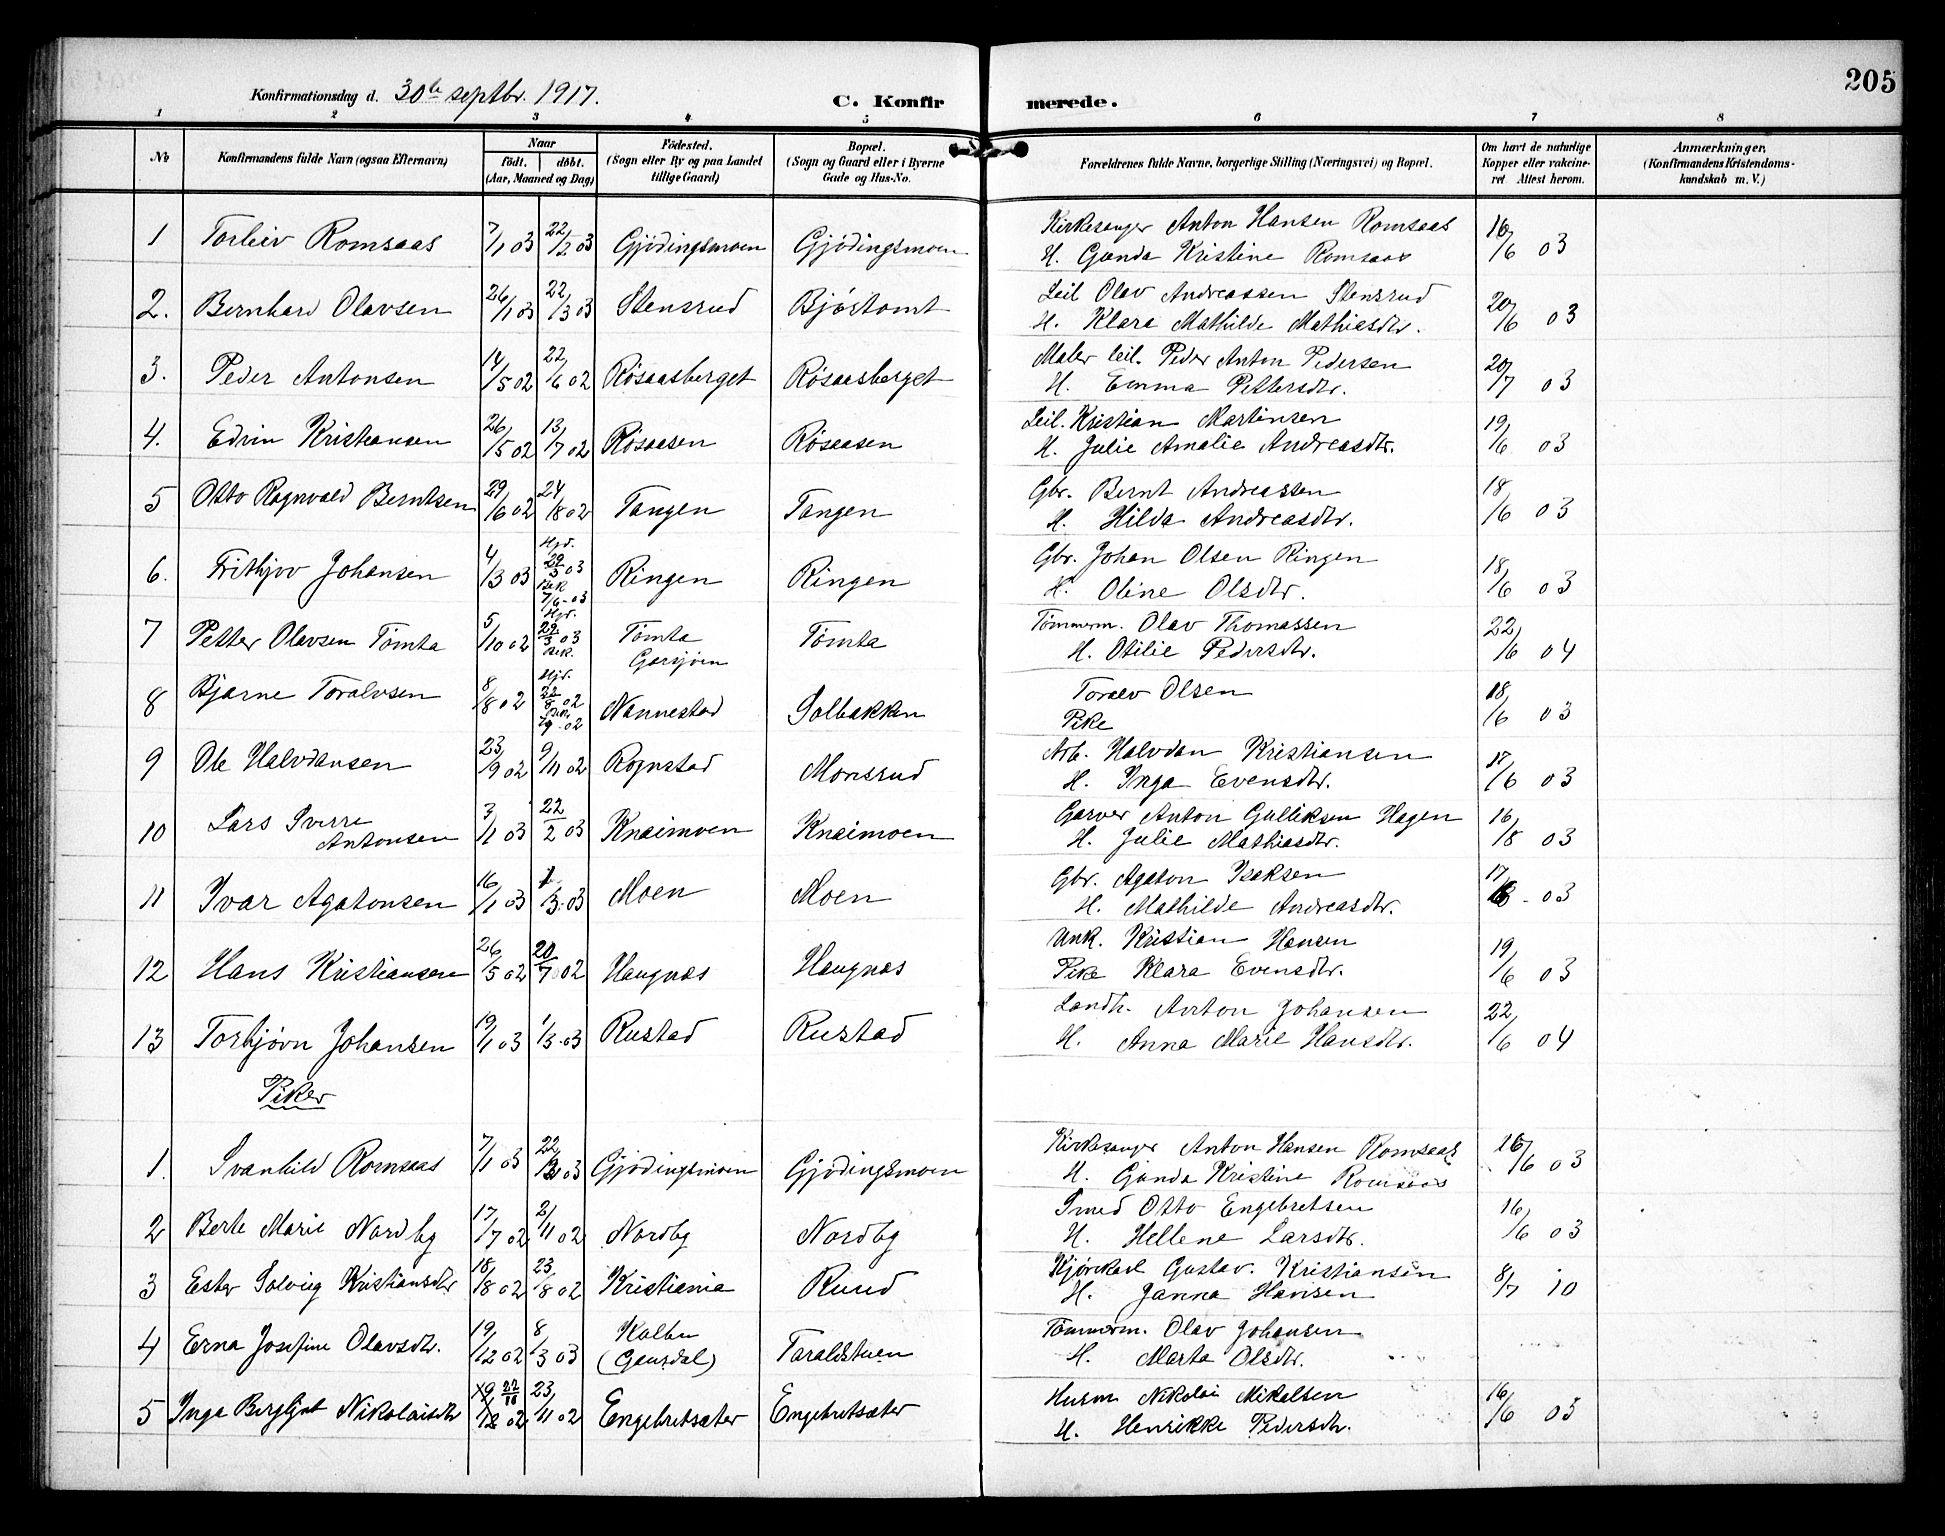 205
Konfirmationsdag d. 30te septbr. 1917.
C. Konfirmerede.
1 2 3 4 5 6 7 8
No
Konfirmandens fulde Navn (ogsaa Efternavn)
Naar
født. døbt.
(Aar, Maaned og Dag)
Fødested.
(Sogn eller By og paa Landet
tillige Gaard)
Bopæl.
(Sogn og Gaard eller i Byerne
Gade og Hus-No.
Forældrenes fulde Navne, borgerlige Stilling (Næringsvei) og Bopæl.
Om havt de naturlige
Kopper eller vakcine-
ret Attest herom.
Anmærkninger,
(Konfirmandens Kristendoms-
kundskab m. V.)
1 Torleiv Romsaas 7/1 03 22/2 03 Gjødingsmoen Gjødingsmoen Kirkesanger Anton Hansen Romsaas 16/6 03
H. Gunda Kristine Romsaas
2. Bernhard Olavsen 26/1 03 22/3 03 Stensrud Bjørtomt Leil Olav Andreassen Stensrud 20/6 03
H. Klara Mathilde Mathiasdtr.
3. Peder Antonsen 14/5 02 22/6 02 Røsaasberget Røsaasberget Maler leil. Peder Anton Pedersen 20/7 03
H. Emma Pettersdtr.
4. Edvin Kristiansen 26/5 02 13/7 02 Røsaasen Røsaasen Leil. Kristian Martinsen 19/6 03
H. Julie Amalie Andreasdtr.
5 Otto Ragnvald Berntsen 29/6 02 24/8 02 Tangen Tangen Gbr. Bernt Andreassen 18/6 03
H. Hilda Andreasdtr.
6. Frithjov Johansen 4/3 03 Hjd. 29/3 03 Bek 7/6-03 Ringen Ringen Gbr. Johan Olsen Ringen 18/6 03
H. Oline Olsdtr.
7 Petter Olavsen Tømta 5/10 02 Hjd. 29/3 03 Bek. Tømta Garsjøen Tømta Tømmerm. Olav Thomassen 22/6 04
H. Otilie Pedersdtr.
8 Bjarne Toralvsen 8/8 02 Hjd. 22/8 02 Nannestad Solbakken Toralv Olsen 18/6 03
Pike
9 Ole Halvdansen 23/9 02 9/11 02 Rognstad Monsrud Arb. Halvdan Kristiansen 17/6 03
H. Inga Evensdtr.
10 Lars Sverre Antonsen 3/1 03 22/2 03 Knaimoen Knaimoen Garver Anton Gulliksen Hagen 16/8 03
H. Julie Mathiasdtr.
11 Ivar Agatonsen 16/1 03 1/3-03 Moen Moen Gbr. Agaton Isaksen 17/6-03
H. Mathilde Andreasdtr.
12 Hans Kristiansen 26/5 02 20/7 02 Haugnæs Haugnæs Unk. Kristian Hansen 19/6 03
Pike Klara Evensdtr.
13 Torbjørn Johansen 19/1 03 1/3-03 Rustad Rustad Landh. Anton Johansen 22/6 04
H. Anna Marie Hansdtr.
Piker
1. Svanhild Romsaas 7/1 03 22/2 03 Gjødingsmoen Gjødingsmoen Kirkesanger Anton Hansen Romsaas 16/6 03
H. Gunda Kristine Romsaas
2 Berte Marie Nordby 17/7 02 2/11 02 Nordby Nordby Smed Otto Engebretsen 16/6 03
H. Hellene Larsdtr.
3 Ester Solveig Kristiansdtr 18/8 02 23/8 02 Kristiania Ruud Kjørekarl Gustav. Kristiansen 8/7 10
H. Janna Hansen
4 Erna Josefine Olavsdtr. 19/12 02 8/3 03 Kalbu (Gausdal) Taraldstuen Tømmerm. Olav Johansen
H. Marta Olsdtr.
5 Inga Bergljot Nikolaisdtr 02 23/11 02 Engebretsæter Engebretsæter Husm Nikolai Mikalsen 16/6 03
H. Henrikke Pedersdtr.